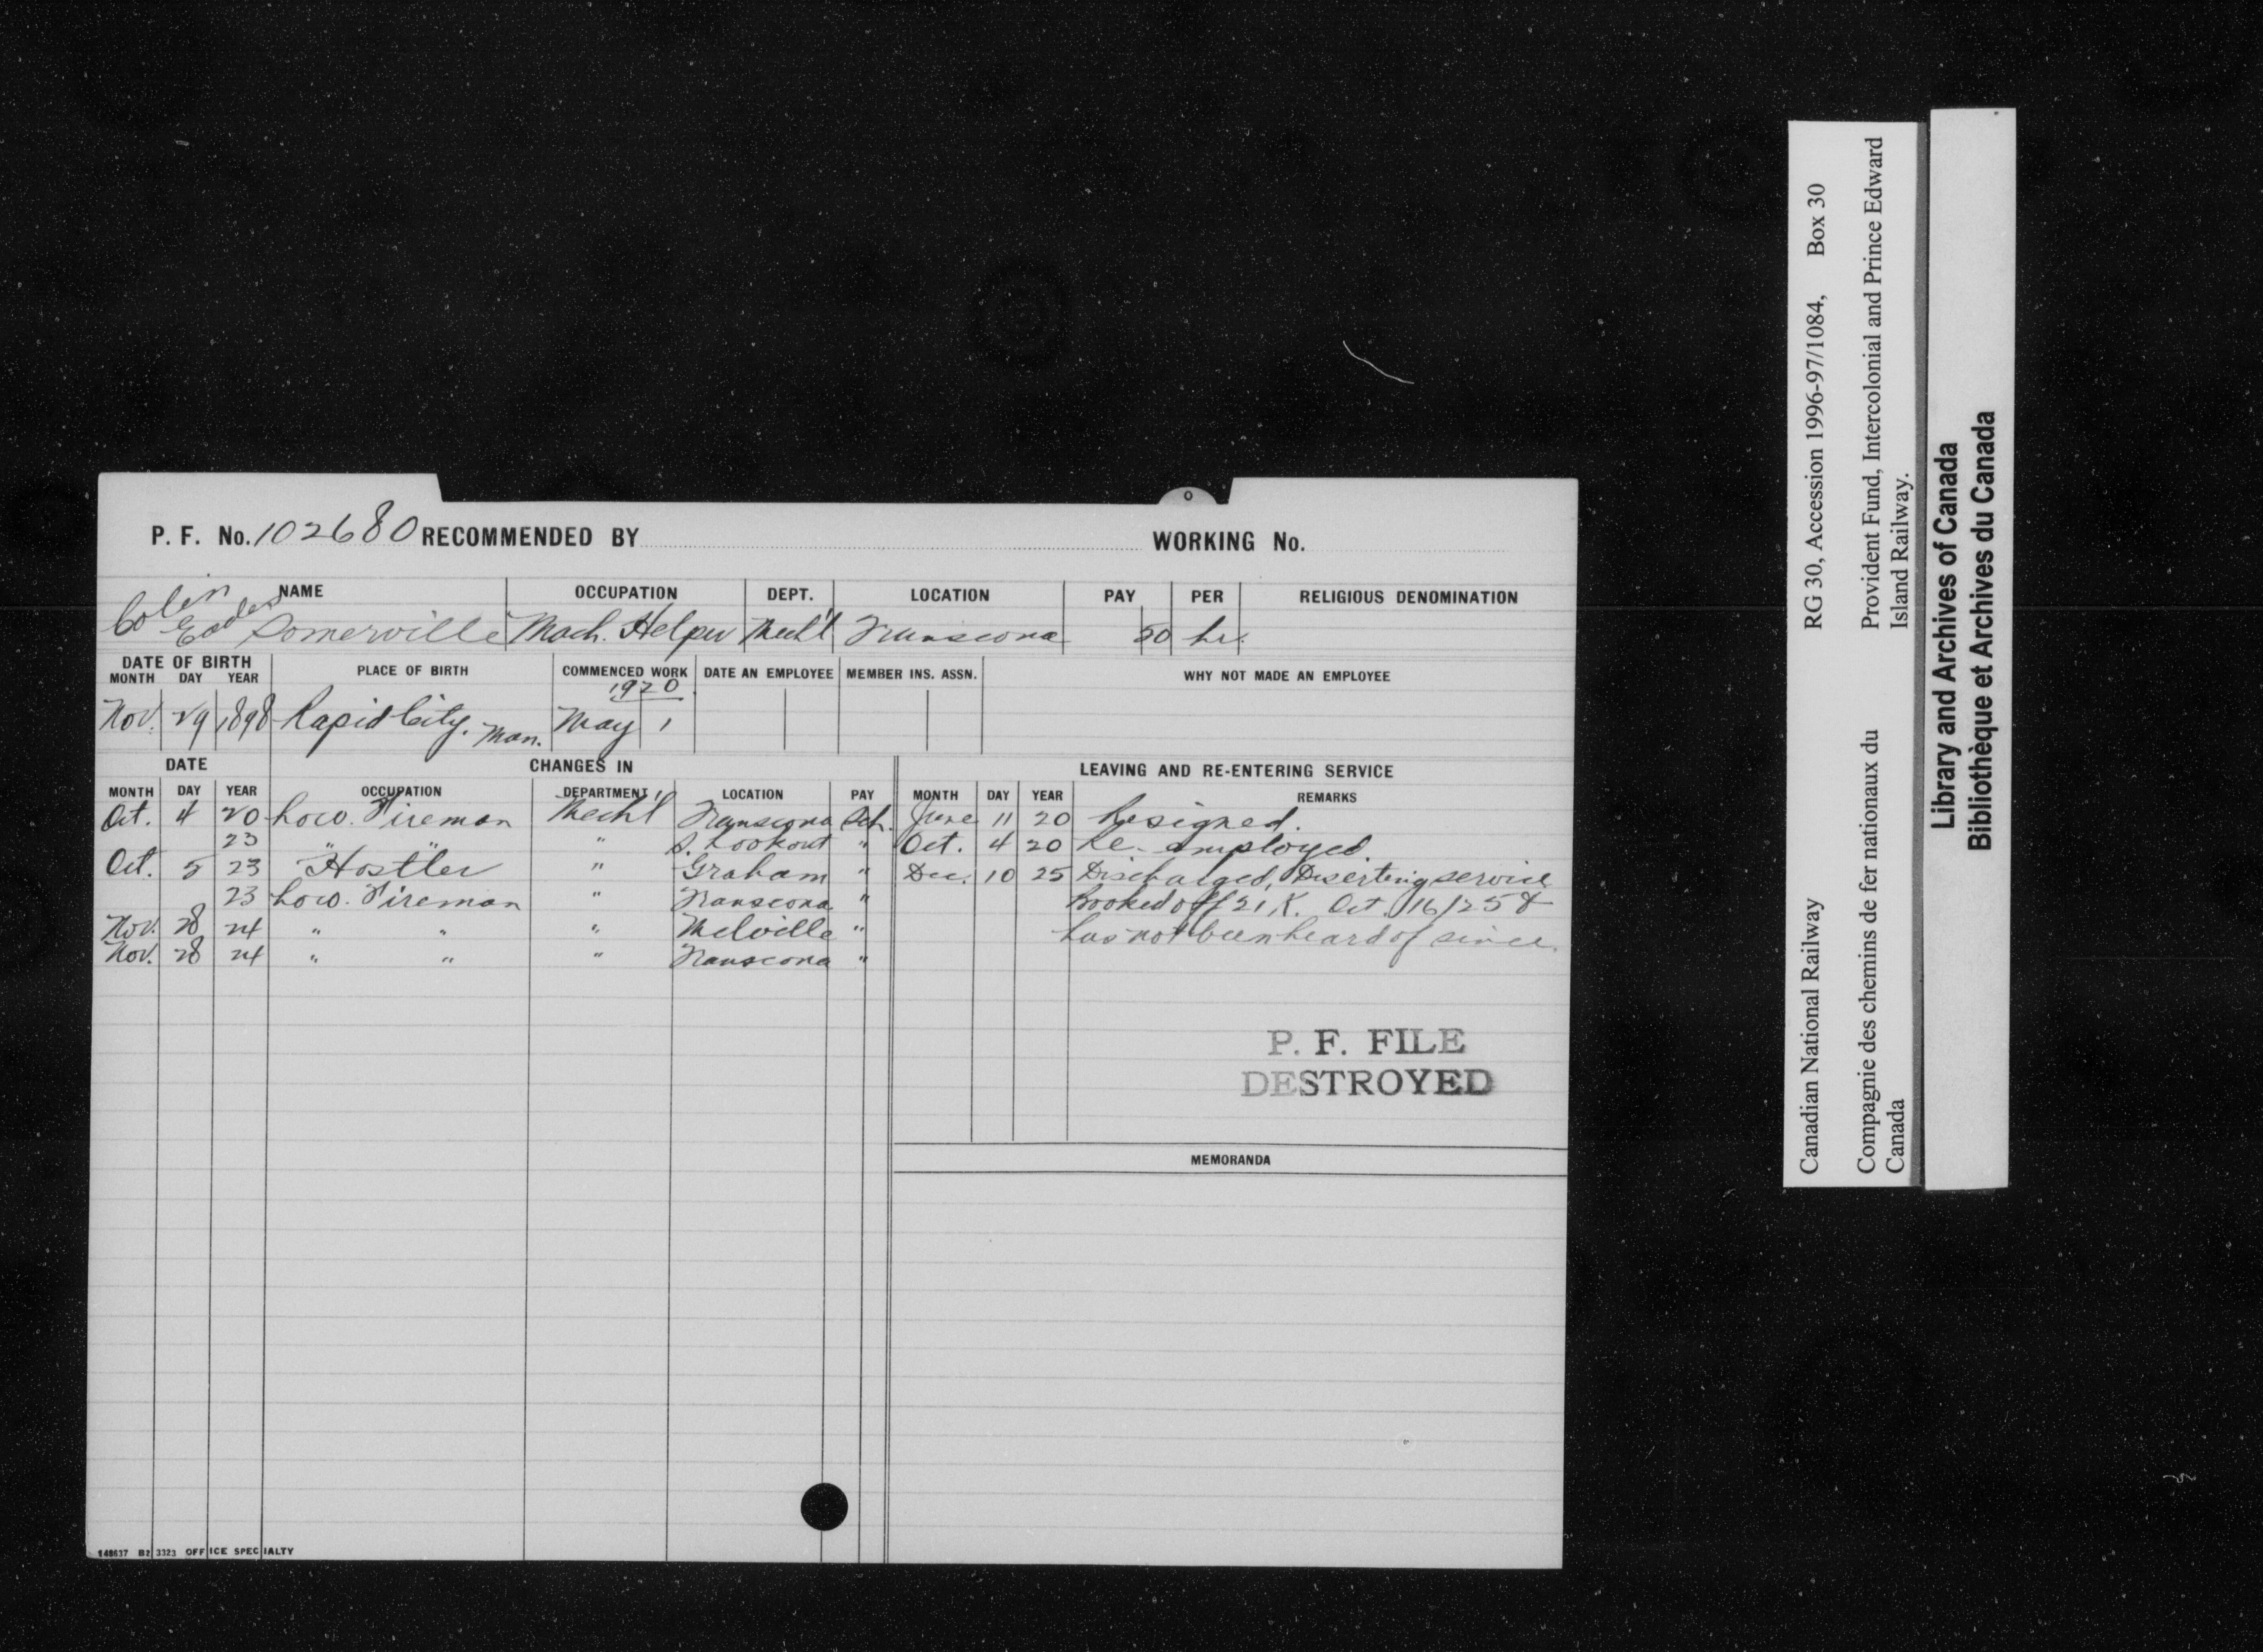 P. F. No. 102680 RECOMMENDED BY WORKING No.
NAME OCCUPATION DEPT. LOCATION PAY PER RELIGIOUS DENOMINATION
Colin
Somerville Mach. Helper Mech'l Transcona 50 hr.
DATE OF BIRTH PLACE OF BIRTH COMMENCED WORK DATE AN EMPLOYEE MEMBER INS. ASSN. WHY NOT MADE AN EMPLOYEE
MONTH DAY YEAR
1920
Nov. 29 1898 Rapid City. Man. May 1
DATE CHANGES IN LEAVING AND RE-ENTERING SERVICE
MONTH DAY YEAR OCCUPATION DEPARTMENT LOCATION PAY MONTH DAY YEAR REMARKS
Oct. 4 20 Loco. Fireman Mech'l Transcona Sch. June 11 20 Resigned.
23 " " " S. Lookout " Oct. 4 20 Re-employed.
Oct. 5 23 Hostler " Graham " Dec. 10 25 Discharged, Deserting service
23 Loco. Fireman " Transcona " Booked off 21 K. Oct. 16/25 &
Nov. 28 24 " " " Melville " has not been heard of since.
Nov. 28 24 " " " Transcona "
P. F. FILE
DESTROYED
MEMORANDA
148637 B2 3323 OFFICE SPECIALTY
Canadian National Railway RG 30, Accession 1996-97/1084, Box 30
Compagnie des chemins de fer nationaux du Provident Fund, Intercolonial and Prince Edward
Canada Island Railway.
Library and Archives of Canada
Bibliothèque et Archives du Canada